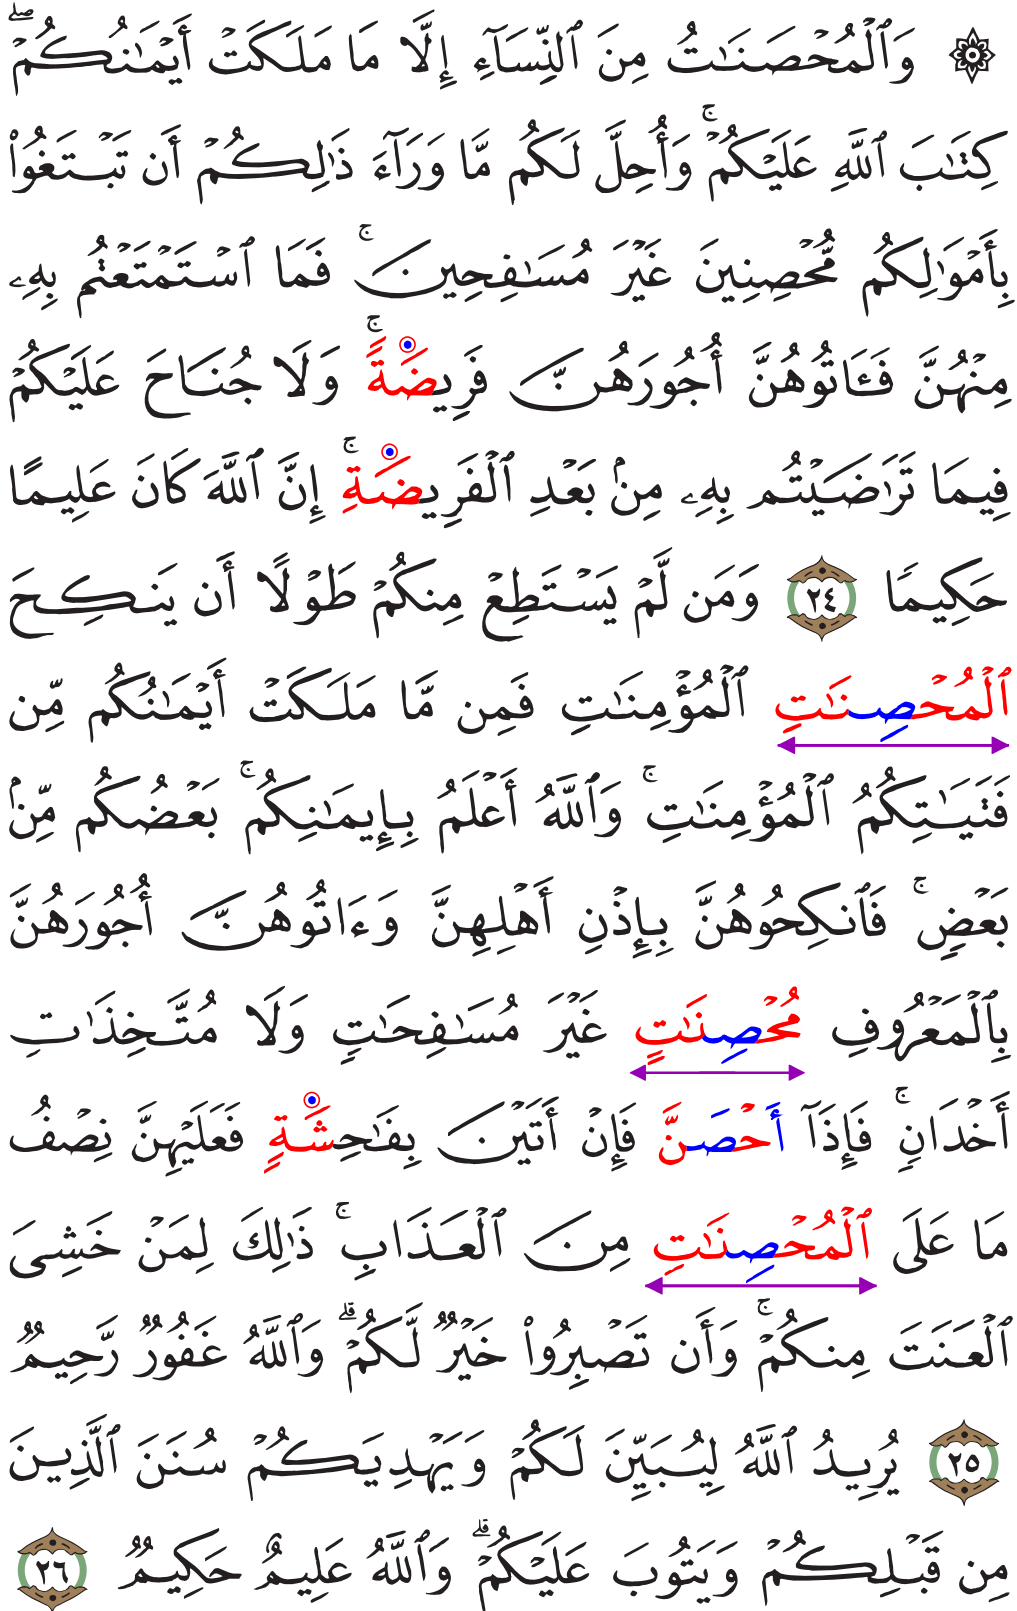 ۞ وَٱلْمُحْصَنَٰتُ مِنَ ٱلنِّسَآءِ إِلَّا مَا مَلَكَتْ أَيْمَٰنُكُمْۖ
كِتَٰبَ ٱللَّهِ عَلَيْكُمْۚ وَأُحِلَّ لَكُم مَّا وَرَآءَ ذَٰلِكُمْ أَن تَبْتَغُوا۟
بِأَمْوَٰلِكُم مُّحْصِنِينَ غَيْرَ مُسَٰفِحِينَۚ فَمَا ٱسْتَمْتَعْتُم بِهِۦ
مِنْهُنَّ فَـَٔاتُوهُنَّ أُجُورَهُنَّ فَرِيضَةًۚ وَلَا جُنَاحَ عَلَيْكُمْ
فِيمَا تَرَٰضَيْتُم بِهِۦ مِنۢ بَعْدِ ٱلْفَرِيضَةِۚ إِنَّ ٱللَّهَ كَانَ عَلِيمًا
حَكِيمًا ٢٤ وَمَن لَّمْ يَسْتَطِعْ مِنكُمْ طَوْلًا أَن يَنكِحَ
ٱلْمُحْصِنَٰتِ ٱلْمُؤْمِنَٰتِ فَمِن مَّا مَلَكَتْ أَيْمَٰنُكُم مِّن
فَتَيَٰتِكُمُ ٱلْمُؤْمِنَٰتِۚ وَٱللَّهُ أَعْلَمُ بِإِيمَٰنِكُمۚ بَعْضُكُم مِّنۢ
بَعْضٍۚ فَٱنكِحُوهُنَّ بِإِذْنِ أَهْلِهِنَّ وَءَاتُوهُنَّ أُجُورَهُنَّ
بِٱلْمَعْرُوفِ مُحْصِنَٰتٍ غَيْرَ مُسَٰفِحَٰتٍ وَلَا مُتَّخِذَٰتِ
أَخْدَانٍۚ فَإِذَآ أَحْصَنَّ فَإِنْ أَتَيْنَ بِفَٰحِشَةٍ فَعَلَيْهِنَّ نِصْفُ
مَا عَلَى ٱلْمُحْصِنَٰتِ مِنَ ٱلْعَذَابِۚ ذَٰلِكَ لِمَنْ خَشِىَ
ٱلْعَنَتَ مِنكُمْۚ وَأَن تَصْبِرُوا۟ خَيْرٌ لَّكُمْۗ وَٱللَّهُ غَفُورٌ رَّحِيمٌ
٢٥ يُرِيدُ ٱللَّهُ لِيُبَيِّنَ لَكُمْ وَيَهْدِيَكُمْ سُنَنَ ٱلَّذِينَ
مِن قَبْلِكُمْ وَيَتُوبَ عَلَيْكُمْۗ وَٱللَّهُ عَلِيمٌ حَكِيمٌ ٢٦